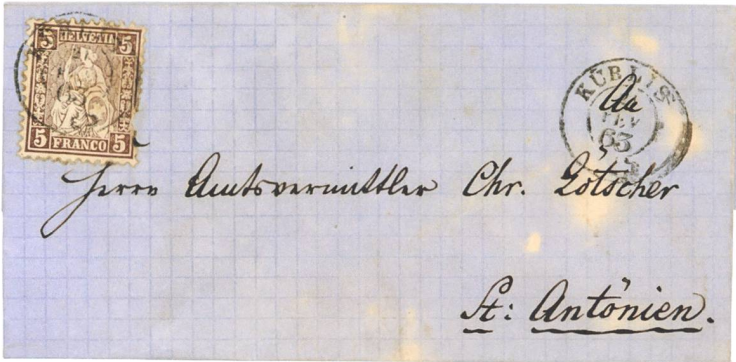 5 HELVETIA 5
5 FRANCO 5
63
KÜBLIS
FEV
63
An
Herrn Amtsvermittler Chr. Lötscher
St: Antönien.